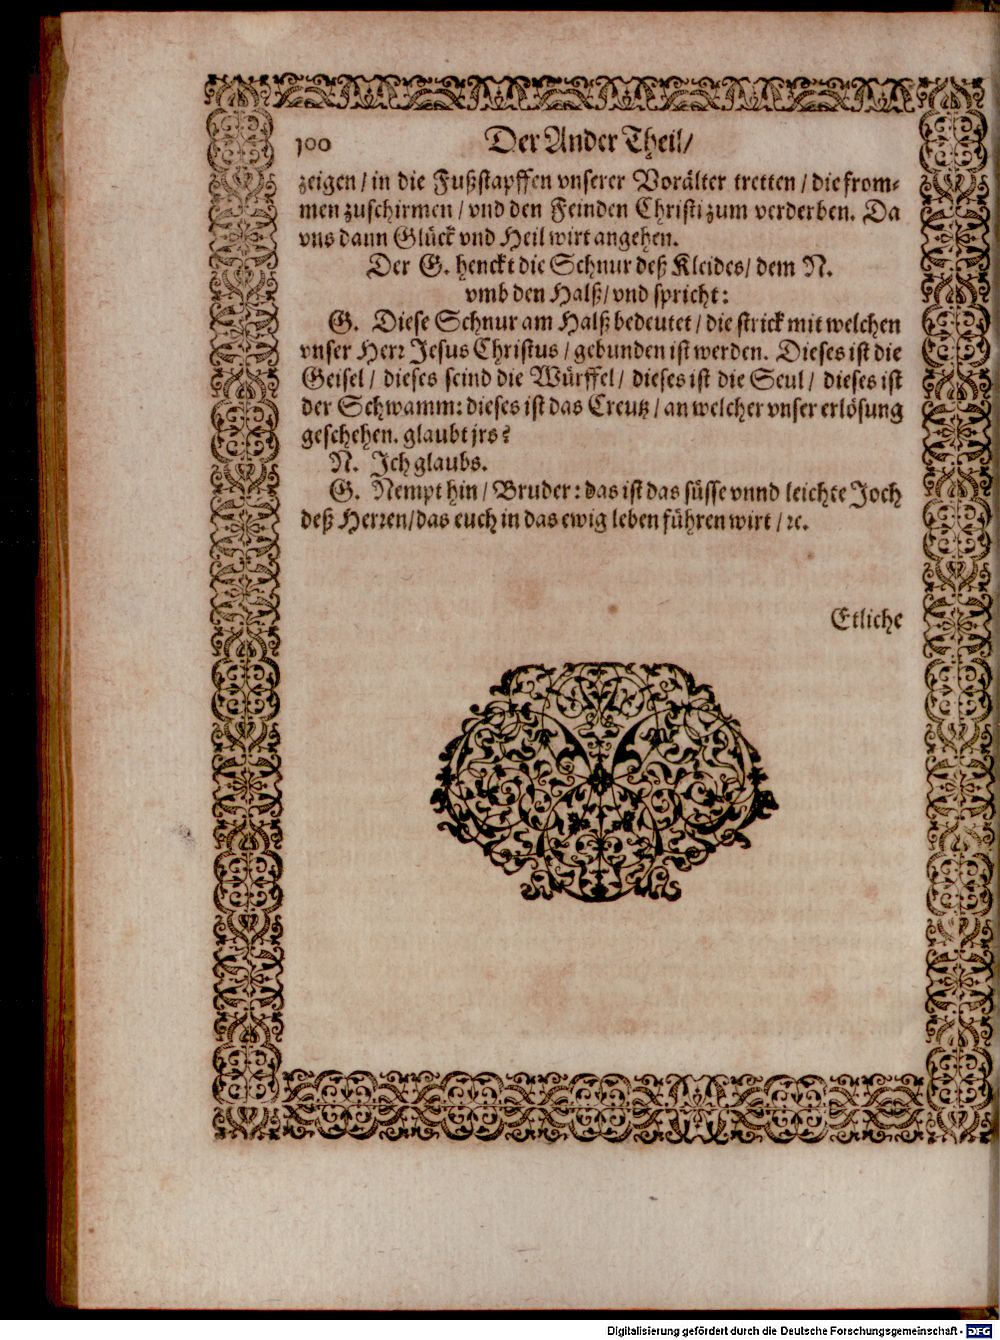 100 Der Ander Theil/
zeigen / in die Fußstapffen vnserer Vorälter tretten / die from-
men zuschirmen / vnd den Feinden Christi zum verderben. Da
vns dann Glück vnd Heil wirt angehen.
Der G. henckt die Schnur deß Kleides / dem N.
vmb den Halß / vnd spricht:
G. Diese Schnur am Halß bedeutet / die strick mit welchen
vnser Herr Jesus Christus / gebunden ist werden. Dieses ist die
Geisel / dieses seind die Würffel / dieses ist die Seul / dieses ist
der Schwamm: dieses ist das Creutz / an welcher vnser erlösung
geschehen. glaubt jrs?
N. Ich glaubs.
G. Nempt hin / Bruder: das ist das süsse vnnd leichte Joch
deß Herren / das euch in das ewig leben führen wirt / ꝛc.
Etliche
Digitalisierung gefördert durch die Deutsche Forschungsgemeinschaft - DFG